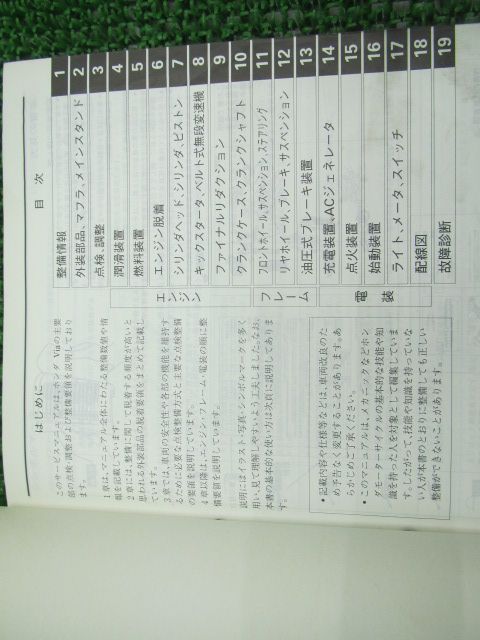 はじめに
このサービスマニュアルは、ホンダ Viaの主要
部の点検・調整および整備要領を説明しており
ます。
1章は、マニュアル全体にわたる整備数値や情
報を記載しています。
2章には、整備に際して脱着する頻度が高いと
思われる外装部品の脱着要領をまとめて記載し
ています。
3章では、車両の安全性や各部の機能を維持す
るために必要な点検整備方式と主要な点検整備
の要領を説明しています。
4章以降は、エンジン・フレーム・電装の順に整
備要領を説明しています。
説明にはイラスト、写真、シンボルマークを多く
用い、見て理解しやすいよう工夫しました。なお、
本書の基本的な使い方は次頁に説明してありま
す。
• 記載内容や仕様等などは、車両改良のた
め予告なく変更することがあります。あ
らかじめご了承ください。
• このマニュアルは、メカニックなどホン
ダモーターサイクルの基本的な技能や知
識を持った人を対象として編集していま
す。したがって、技能や知識を持っていな
い人が本書のとおりに整備しても正しい
整備ができないことがあります。
目 次
整備情報 1
外装部品、マフラ、メインスタンド 2
点検・調整 3
エンジン
潤滑装置 4
燃料装置 5
エンジン脱着 6
シリンダヘッド、シリンダ、ピストン 7
キックスタータ、ベルト式無段変速機 8
ファイナルリダクション 9
クランクケース、クランクシャフト 10
フレーム
フロントホイール、サスペンション、ステアリング 11
リヤホイール、ブレーキ、サスペンション 12
油圧式ブレーキ装置 13
電 装
充電装置、ACジェネレータ 14
点火装置 15
始動装置 16
ライト、メータ、スイッチ 17
配線図 18
故障診断 19